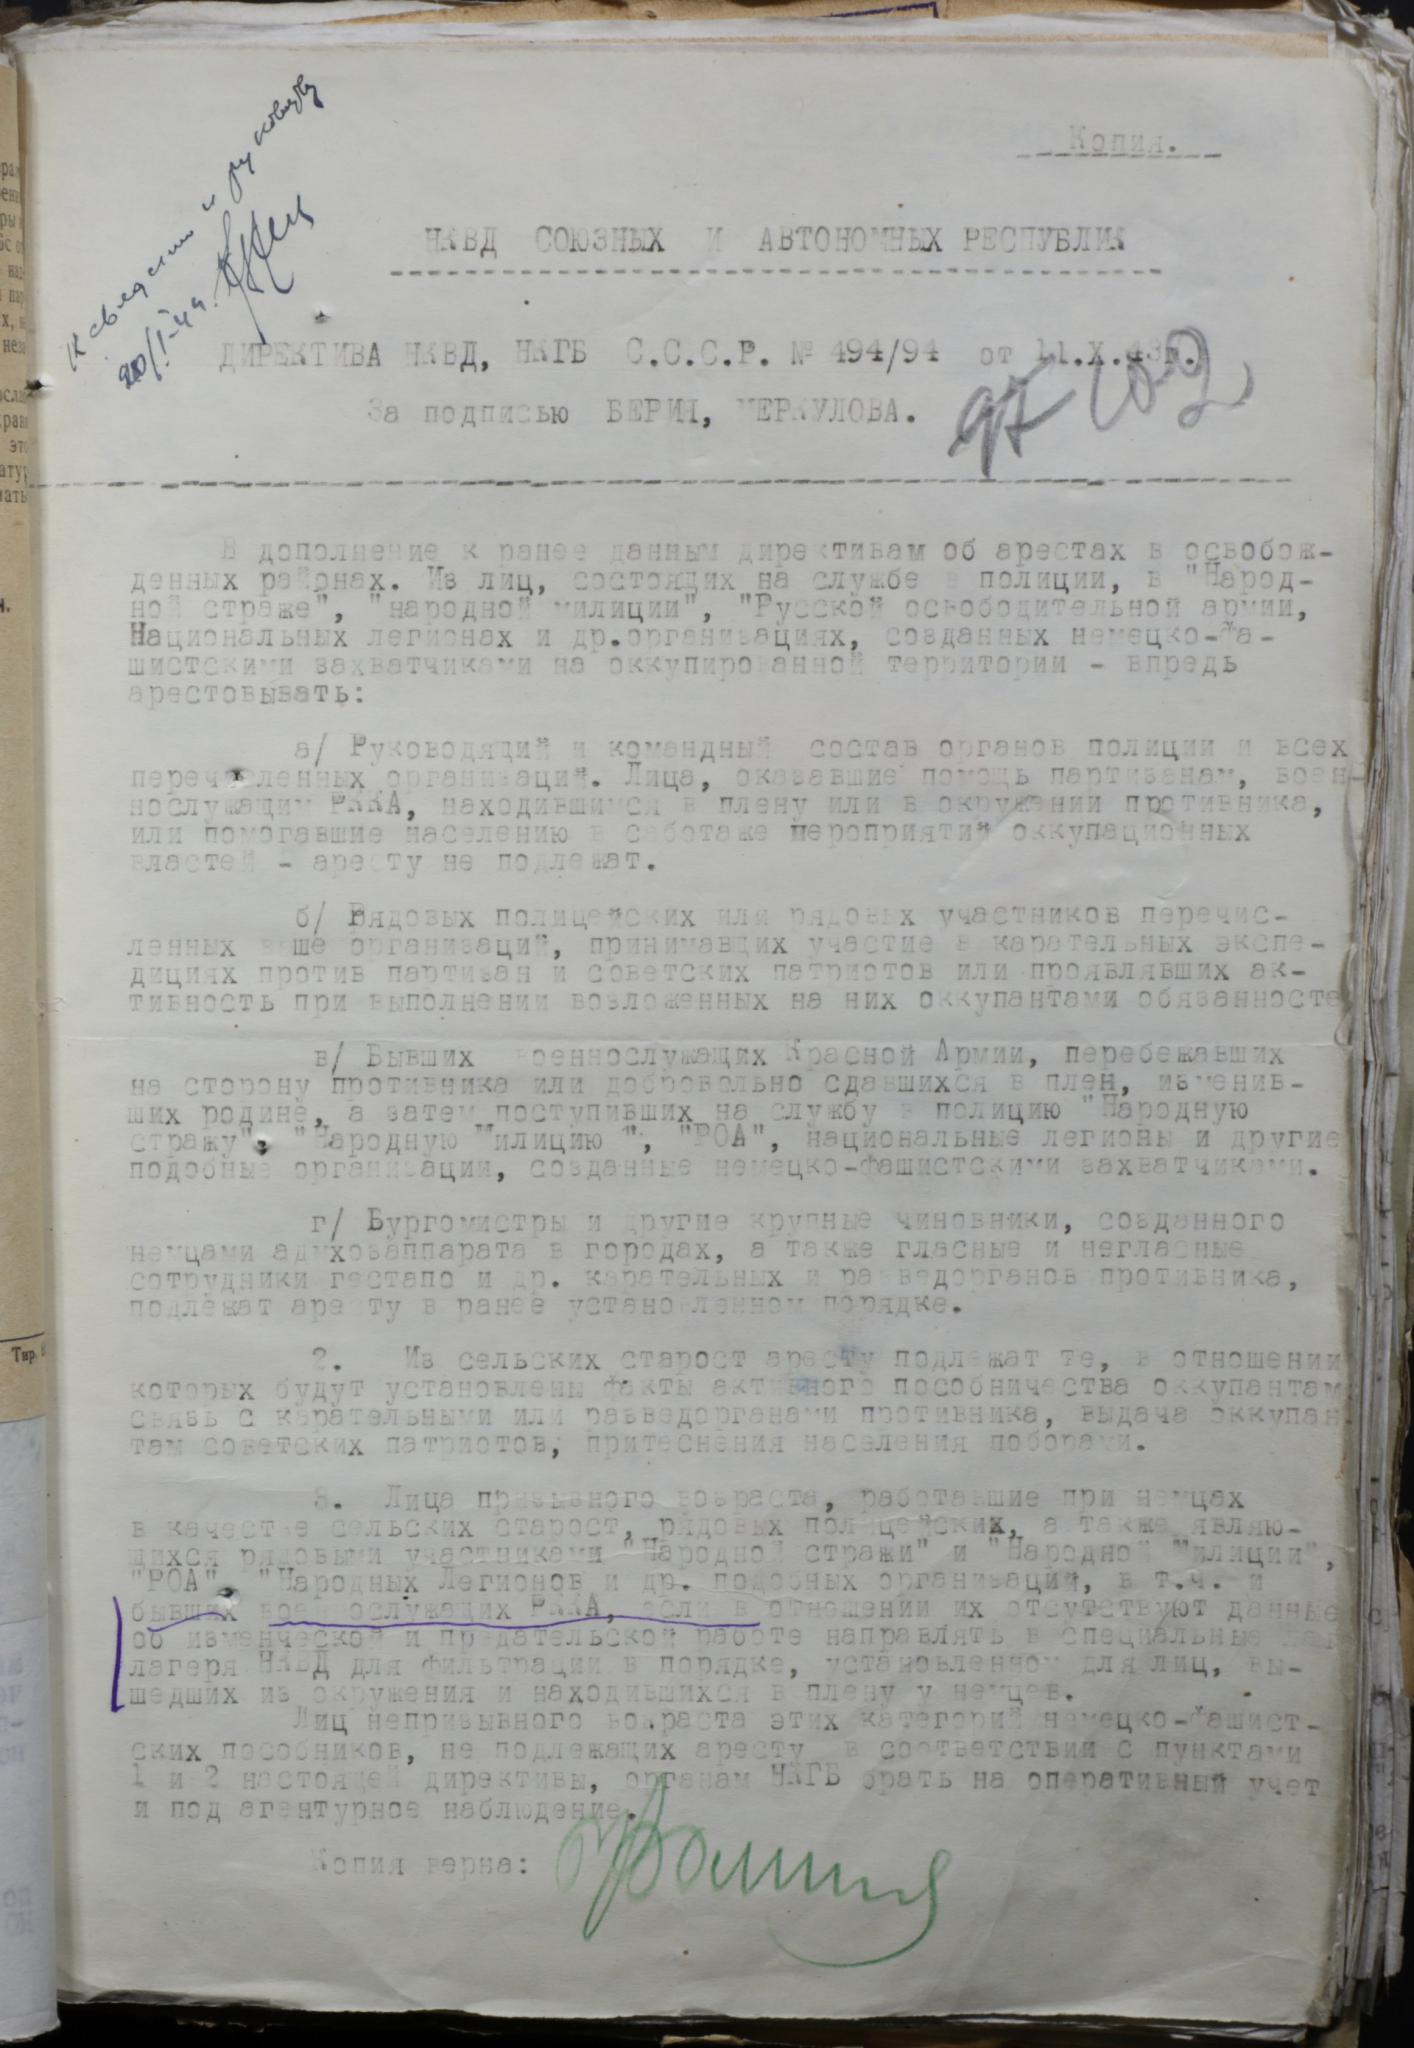 Копия.
К сведению и руководству
20/I-44
НКВД СОЮЗНЫХ И АВТОНОМНЫХ РЕСПУБЛИК
ДИРЕКТИВА НКВД, НКГБ С.С.С.Р. № 494/94 от 11.X.43г.
За подписью БЕРИЯ, МЕРКУЛОВА.
97 102
В дополнение к ранее данным директивам об арестах в освобож-
денных районах. Из лиц, состоящих на службе в полиции, в "Народ-
ной страже", "народной милиции", "Русской освободительной армии,
Национальных легионах и др.организациях, созданных немецко-фа-
шистскими захватчиками на оккупированной территории - впредь
арестовывать:
а/ Руководящий и командный состав органов полиции и всех
перечисленных организаций. Лица, оказавшие помощь партизанам, воен-
нослужащим РККА, находившимся в плену или в окружении противника,
или помогавшие населению в саботаже мероприятий оккупационных
властей - аресту не подлежат.
б/ Рядовых полицейских или рядовых участников перечис-
ленных выше организаций, принимавших участие в карательных экспе-
дициях против партизан и советских патриотов или проявлявших ак-
тивность при выполнении возложенных на них оккупантами обязанносте
в/ Бывших военнослужащих Красной Армии, перебежавших
на сторону противника или добровольно сдавшихся в плен, изменив-
ших родине, а затем поступивших на службу в полицию "Народную
стражу", "Народную Милицию", "РОА", национальные легионы и другие
подобные организации, созданные немецко-фашистскими захватчиками.
г/ Бургомистры и другие крупные чиновники, созданного
немцами админхозаппарата в городах, а также гласные и негласные
сотрудники гестапо и др. карательных и разведорганов противника,
подлежат аресту в ранее установленном порядке.
2. Из сельских старост аресту подлежат те, в отношении
которых будут установлены факты активного пособничества оккупантам
связь с карательными или разведорганами противника, выдача оккупан
там советских патриотов, притеснения населения поборами.
3. Лица призывного возраста, работавшие при немцах
в качестве сельских старост, рядовых полицейских, а также являю-
щихся рядовыми участниками "Народной стражи" и "Народной Милиции",
"РОА", "Народных Легионов и др. подобных организаций, в т.ч. и
бывших военнослужащих РККА, если в отношении их отсутствуют данные
об изменческой и предательской работе направлять в специальные
лагеря НКВД для фильтрации в порядке, установленном для лиц, вы-
шедших из окружения и находившихся в плену у немцев.
Лиц непризывного возраста этих категорий немецко-фашист-
ских пособников, не подлежащих аресту в соответствии с пунктами
1 и 2 настоящей директивы, органам НКГБ брать на оперативный учет
и под агентурное наблюдение.
Копия верна:
Тир.